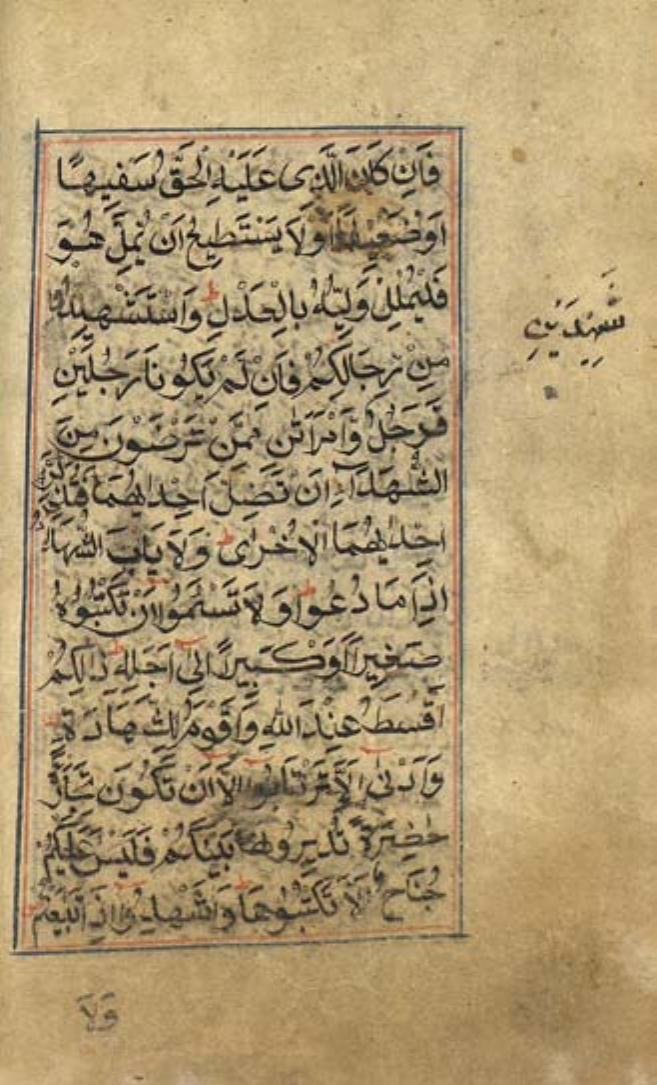 فَاِنْ كَانَ الَّذِى عَلَيْهِ الْحَقُّ سَفِيهًا
اَوْ ضَعِيفًا اَوْ لَا يَسْتَطِيعُ اَنْ يُمِلَّ هُوَ
فَلْيُمْلِلْ وَلِيُّهُ بِالْعَدْلِ ط وَاسْتَشْهِدُوا
شَهِيدَيْنِ
مِنْ رِجَالِكُمْ فَاِنْ لَمْ يَكُونَا رَجُلَيْنِ
فَرَجُلٌ وَامْرَاَتٰنِ مِمَّنْ تَرْضَوْنَ مِنَ
الشُّهَدَآءِ اَنْ تَضِلَّ اِحْدٰيهُمَا فَتُذَكِّرَ
اِحْدٰيهُمَا الْاُخْرٰى ط وَلَا يَابَ الشُّهَدَاءُ
اِذَا مَا دُعُوا ط وَلَا تَسْئَمُوا اَنْ تَكْتُبُوهُ
صَغِيرًا اَوْ كَبِيرًا اِلٰى اَجَلِهِ ط ذٰلِكُمْ
اَقْسَطُ عِنْدَ اللهِ وَاَقْوَمُ لِلشَّهَادَةِ
وَاَدْنٰى اَلَّا تَرْتَابُوا اِلَّا اَنْ تَكُونَ تِجَارَةً
حَاضِرَةً تُدِيرُونَهَا بَيْنَكُمْ فَلَيْسَ عَلَيْكُمْ
جُنَاحٌ اَلَّا تَكْتُبُوهَا ط وَاَشْهِدُوا اِذَا تَبَايَعْتُمْ
وَلَا